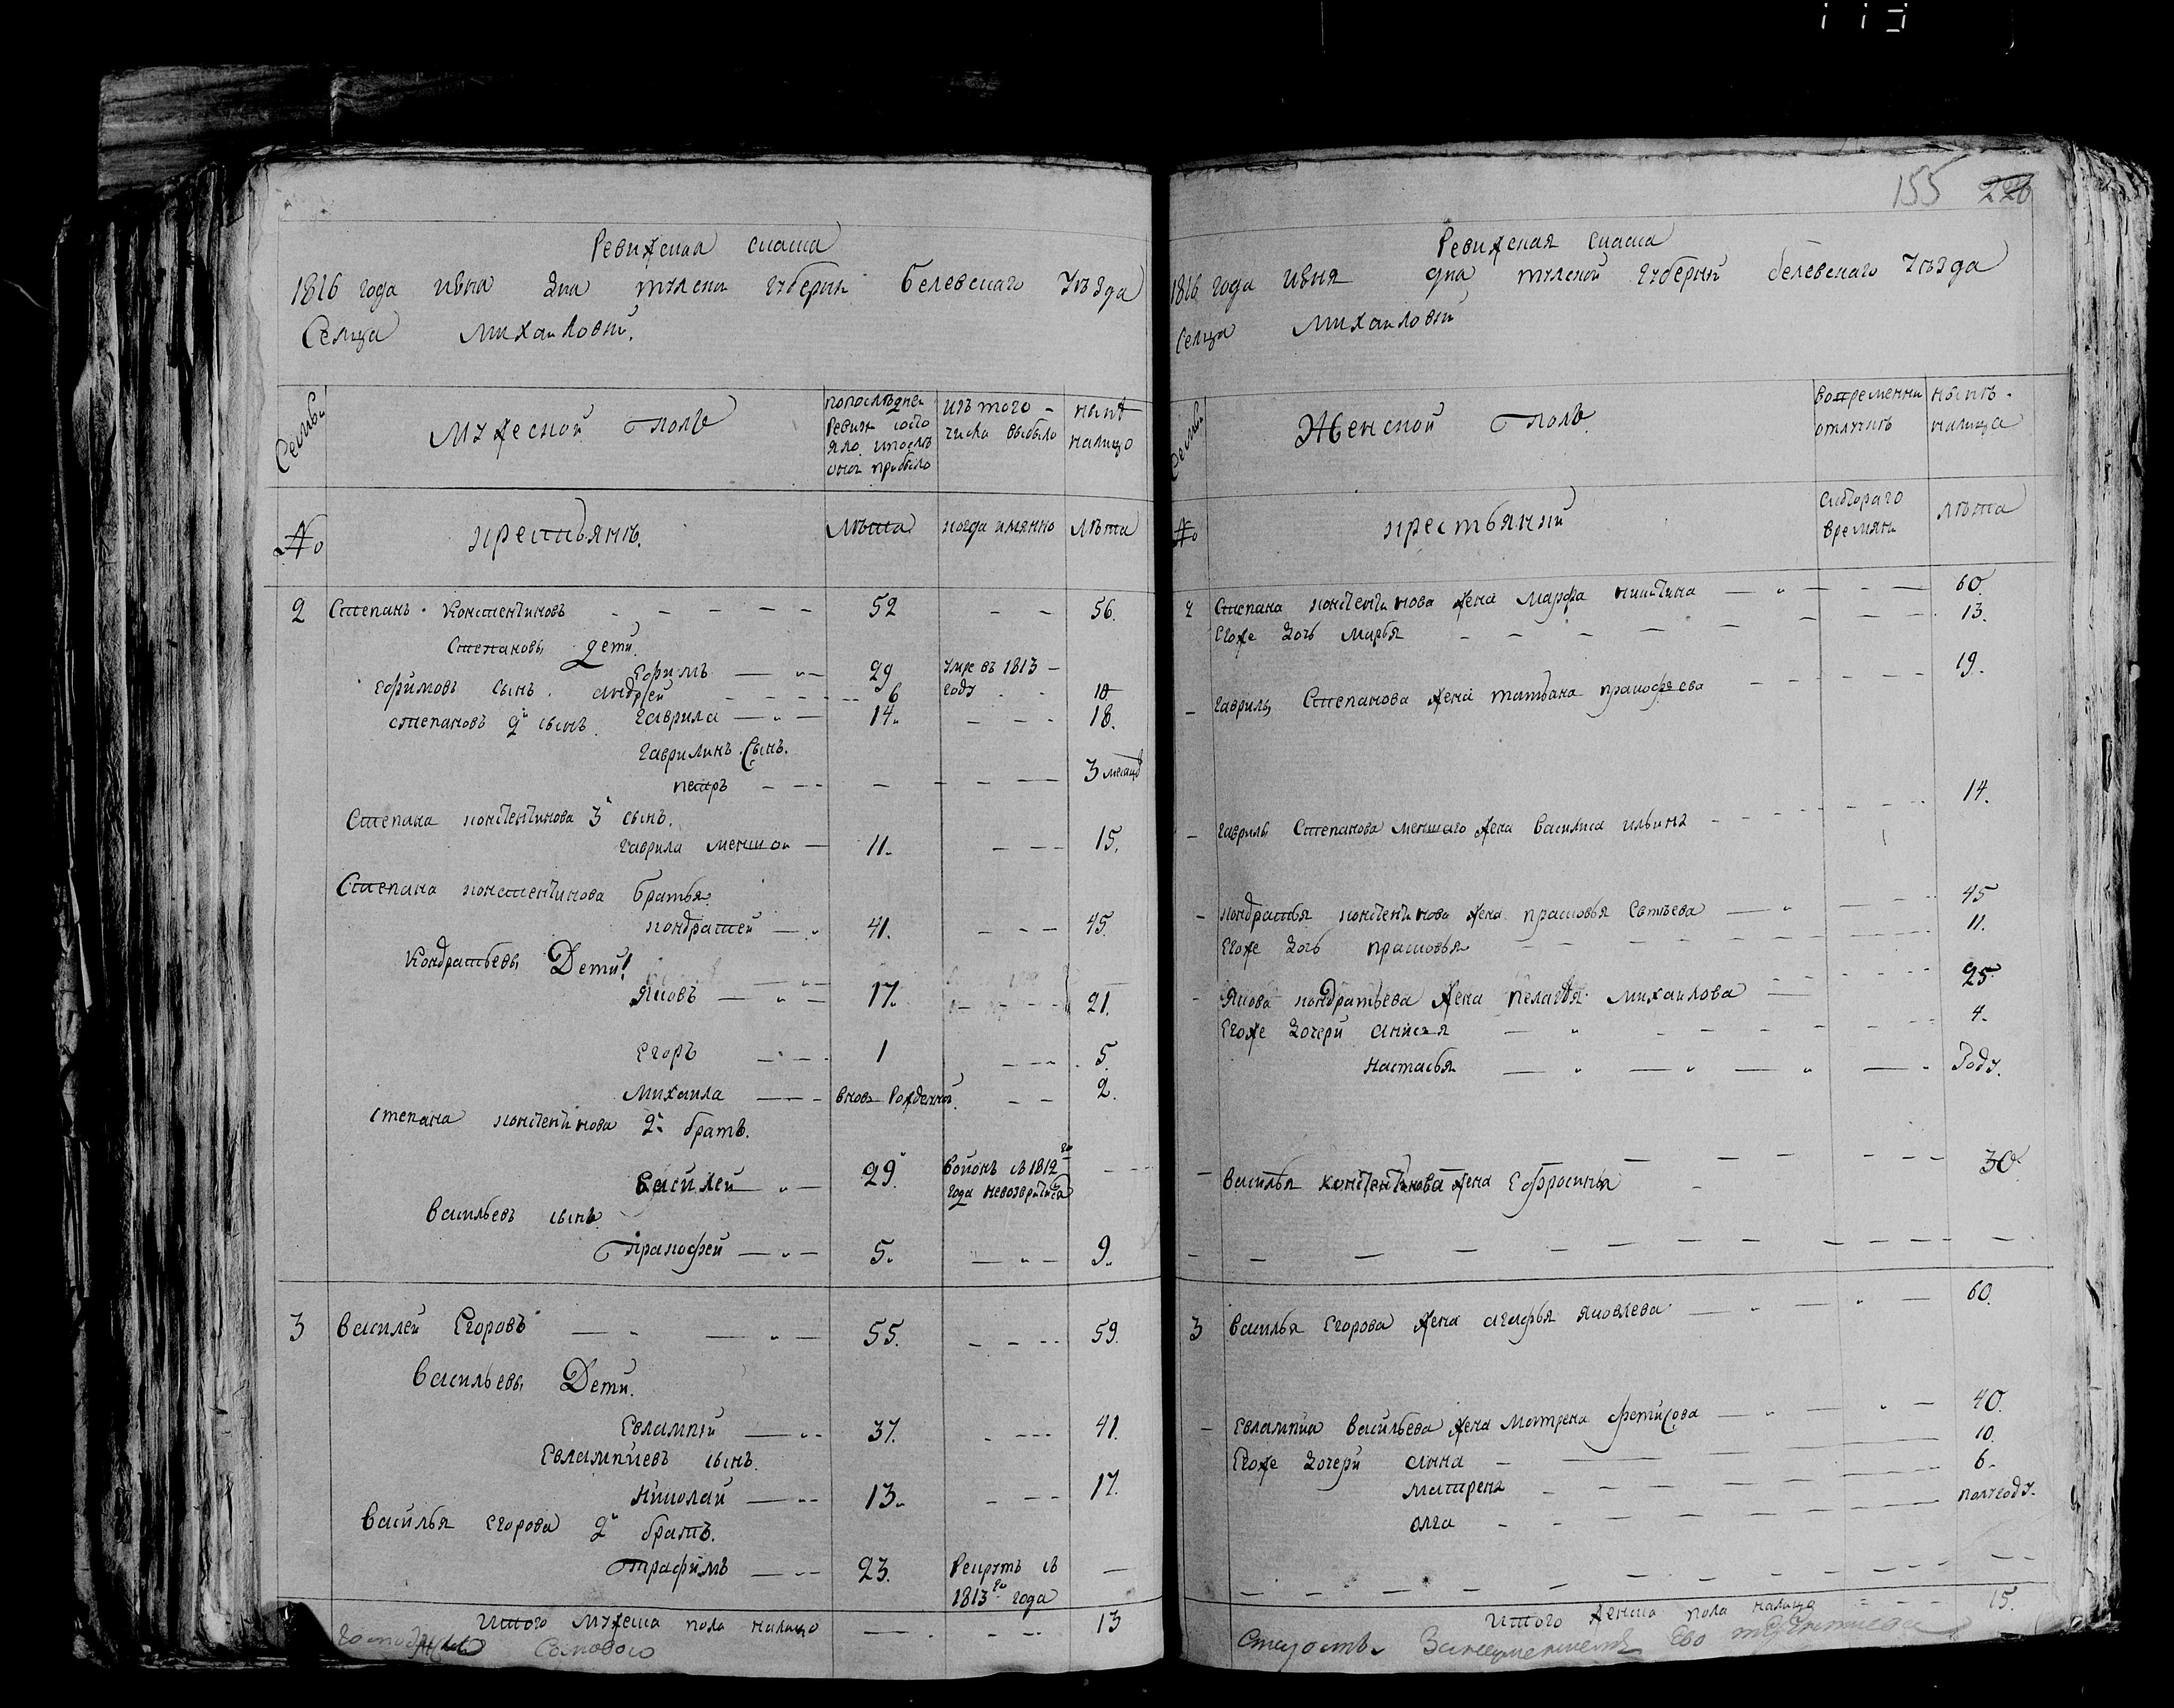 155 226
Ревижская скаска
1816 года июня дня тулской губернии белевскаго уезда
Селца Михаиловки.
Семьи
Мужеской полъ
попоследней
ревизи состо
яло и после
оной прибыло
изъ того
числа выбыло
ныне
налицо
№
крестьянъ.
лета
когда имянно
лета
2 Степанъ Констентиновъ 52 56.
Степановы дети
Ефимъ 29 умре въ 1813
году
Ефимовъ сынъ Андрей 6 10
степановъ 2й сынъ Гаврила 14. 18.
Гаврилинъ Сынъ.
петръ 3 месяца
Степана констентинова 3й сынъ.
Гаврила меншой 11. 15.
Степана констентинова братья
кондратей 41. 45.
Кондратьевы Дети
Яковъ 17. 21.
Егоръ 1 5.
Михаила вновь рожденной. 2.
степана констентинова 2й братъ.
Василей 29. воионъ съ 1812го
года невозвратился
Васильевъ сынъ
Пракофей 5. 9.
3 Василей Егоровъ 55. 59.
Васильевы Дети.
Евлампий 37. 41.
Евлампиевъ сынъ.
николай 13. 17.
Василья Егорова 2й братъ.
трафимъ 23. Рекрутъ съ
1813го года
Итого мужеска пола налицо 13
Ревижская скаска
1816 года июня дня тулской губернии белевскаго уезда
Селца Михаиловки
Семьи
Женской полъ
вовременной
отлучке
ныне
налица
№
крестьянки
скотораго
времяни
лета
2 Степана констентинова жена Марфа никитина 60.
Егоже дочь Марья 13.
Гаврилы Степанова жена татьана пракофьева 19.
Гаврилы Степанова меншаго жена Василиса ильина 14.
кондратья констентинова жена прасковья Евтеева 45
Егоже дочь прасковья 11.
Якова кондратьева жена пелагея михаилова 25.
Егоже дочери анисья 4.
настасья Году.
Васильа констентинова жена Ефросинья 30.
3 Васильа Егорова жена агафья яковлева 60.
Евлампиа Васильева жена Матрена фетисова 40.
Егоже дочери анна 10.
матрена 6.
олга полугоду.
Итого женска пола налица 15.